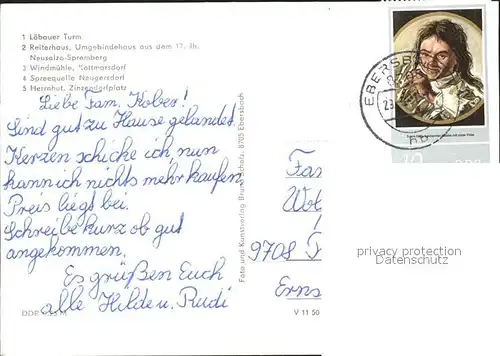 1 Löbauer Turm
2 Reiterhaus, Umgebindehaus aus dem 17. Jh.
Neusalza-Spremberg
3 Windmühle, Kottmarsdorf
4 Spreequelle Neugersdorf
5 Herrnhut, Zinzendorfplatz
Liebe Fam. Kober!
Sind gut zu Hause gelandet.
Kerzen schicke ich, nun
kann ich nichts mehr kaufen
Preis liegt bei.
Schreibe kurz ob gut
angekommen.
Es grüßen Euch
alle Hilde u. Rudi
DDR
V 11 50
Foto und Kunstverlag Bruno Scholz, 8705 Ebersbach
EBERSB
23.
10 DDR
Fam
9708
Erns
privacy protection
Datenschutz